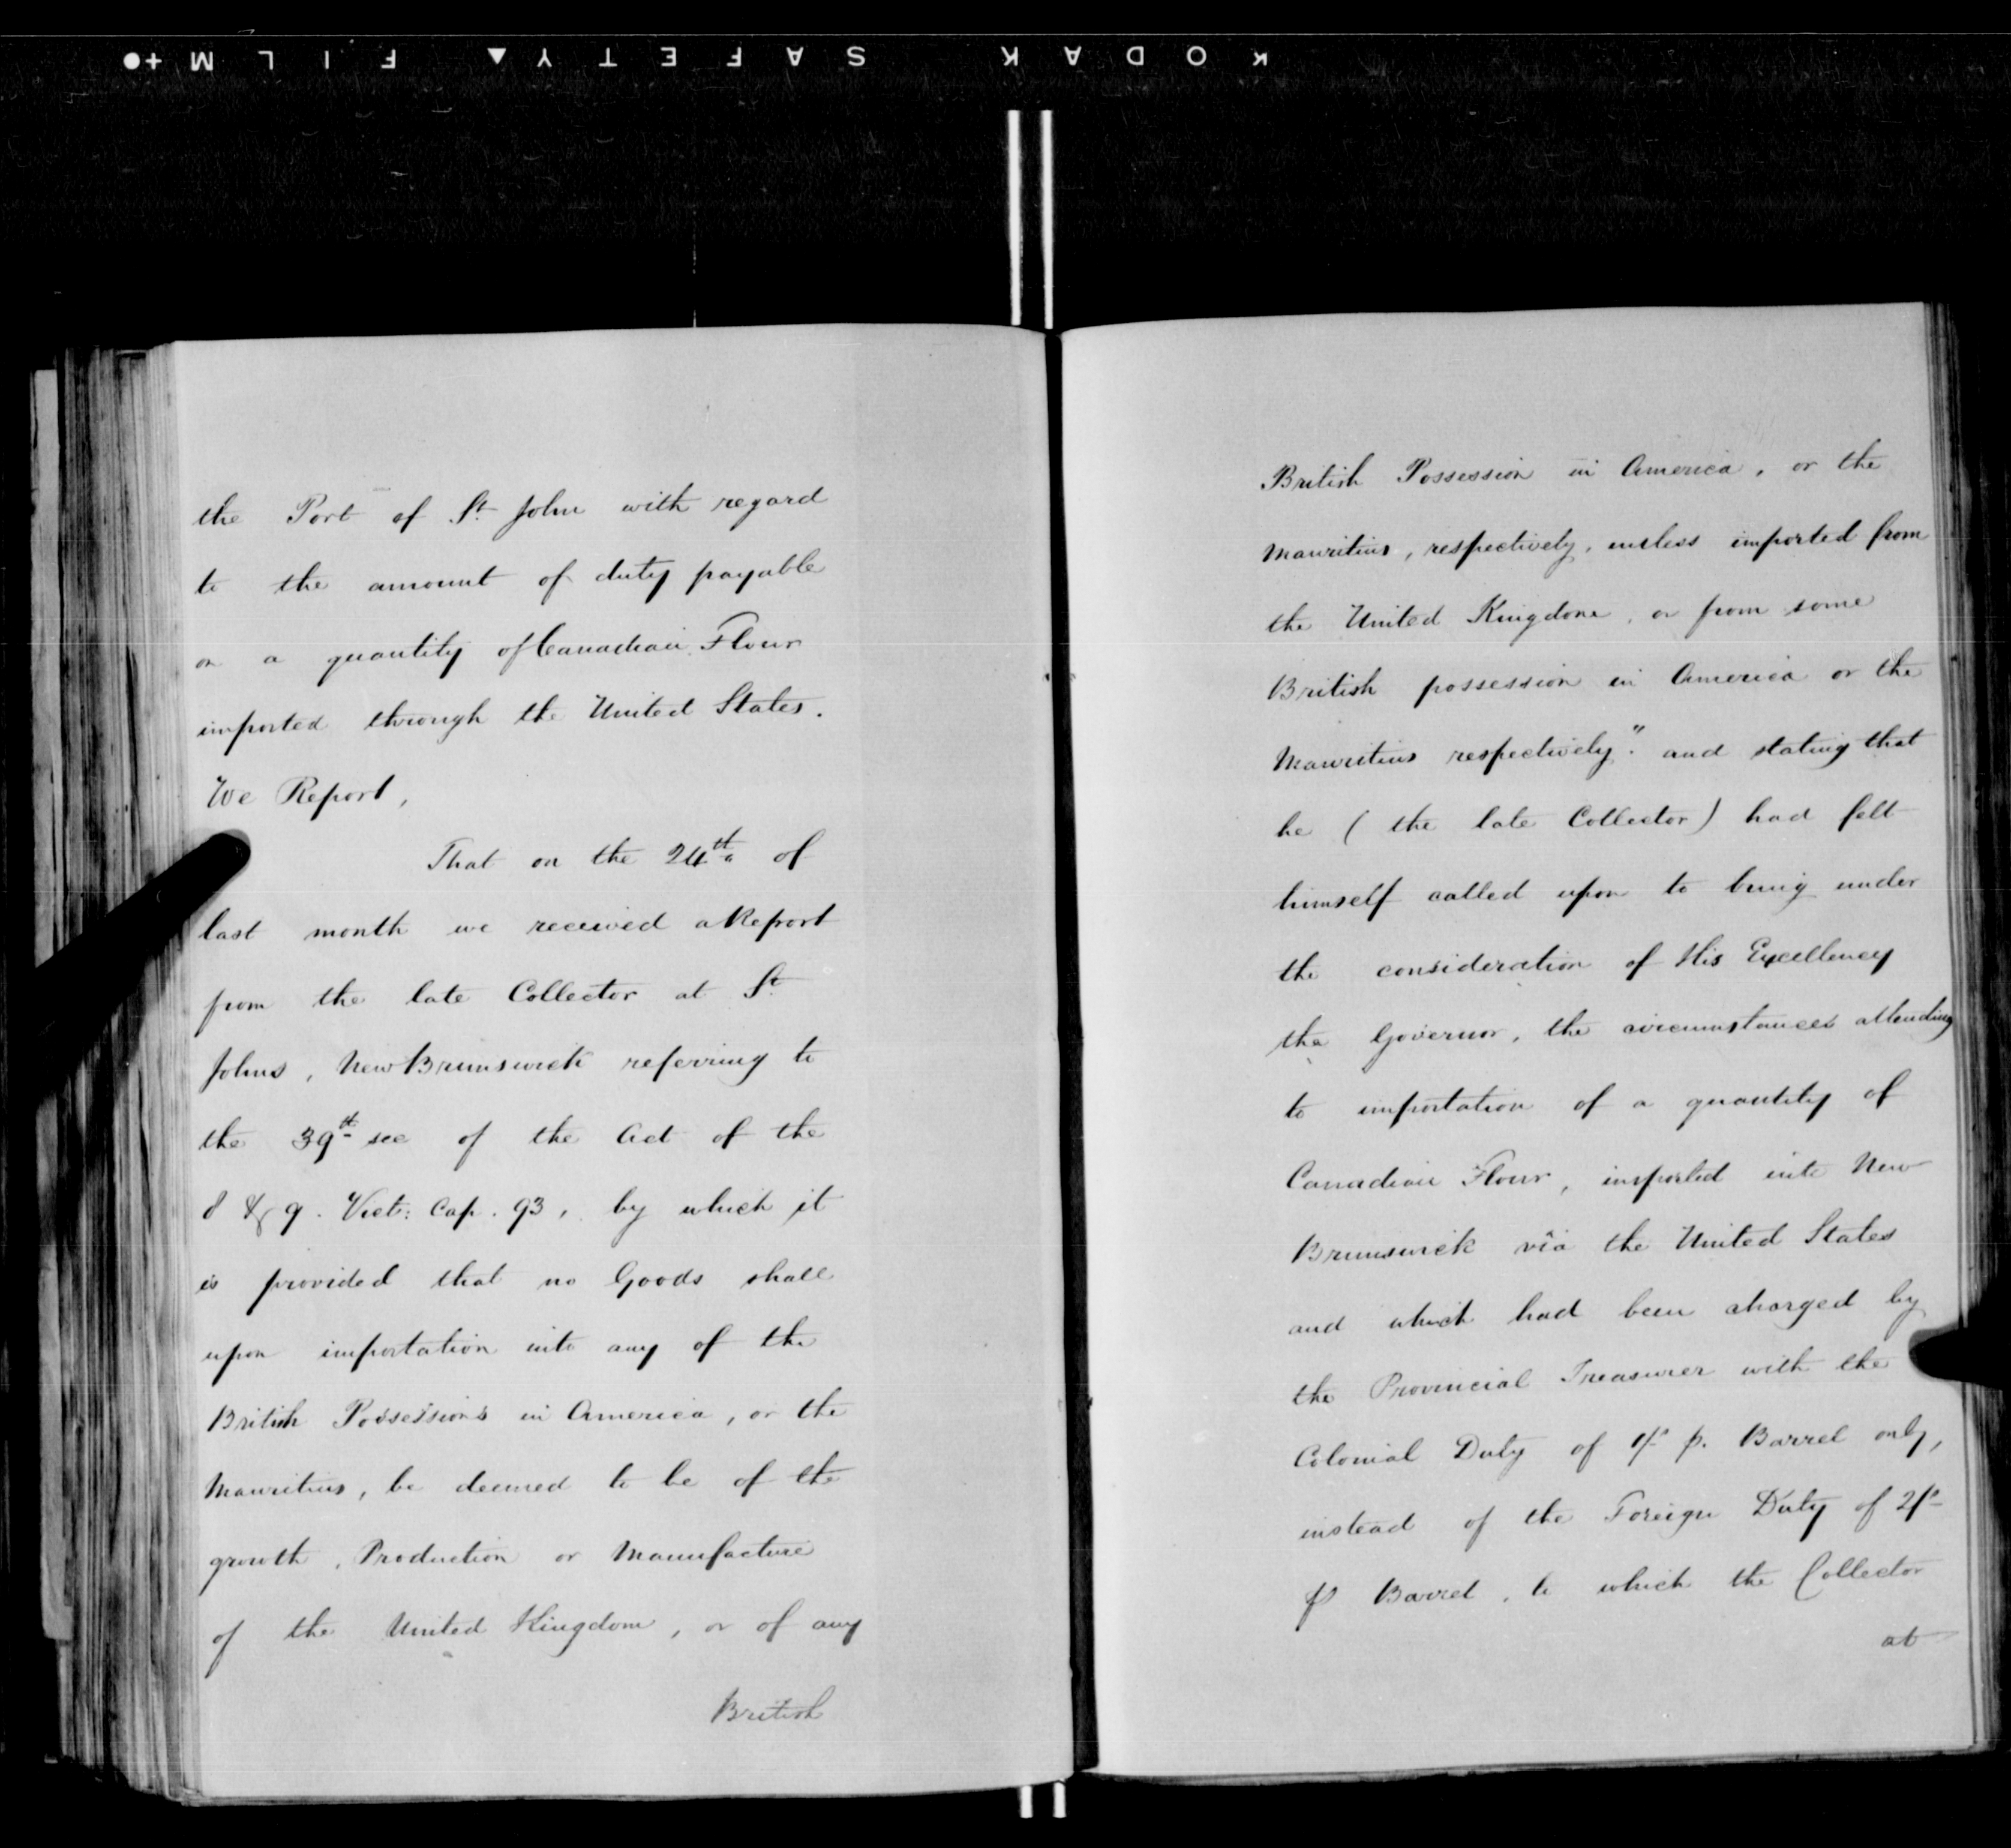 KODAK SAFETY FILM
the Port of St. John with regard
to the amount of duty payable
on a quantity of Canadian Flour
imported through the United States.
We Report,
That on the 24th of
last month we received a Report
from the late Collector at St.
Johns, New Brunswick referring to
the 39th sec of the Act of the
8 & 9. Vict: Cap. 93, by which it
is provided that no Goods shall
upon importation into any of the
British Possessions in America, or the
Mauritius, be deemed to be of the
growth, Production or Manufacture
of the United Kingdom, or of any
British
British Possession in America, or the
Mauritius, respectively, unless imported from
the United Kingdom, or from some
British possession in America or the
Mauritius respectively". and stating that
he (the late Collector) had felt
himself called upon to bring under
the consideration of His Excellency
the Governor, the circumstances attending
to importation of a quantity of
Canadian Flour, imported into New
Brunswick via the United States
and which had been charged by
the Provincial Treasurer with the
Colonial Duty of 1/- p. Barrel only,
instead of the Foreign Duty of 2/-
p Barrel, to which the Collector
at